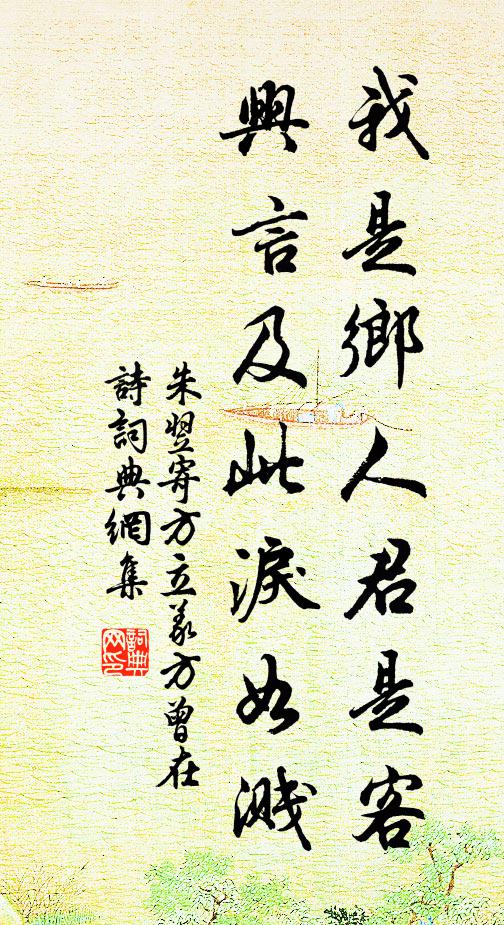 我是鄉人君是客
興言及此淚如濺
朱翌寄方立義方曾在
詩詞典網集
詞典
网印